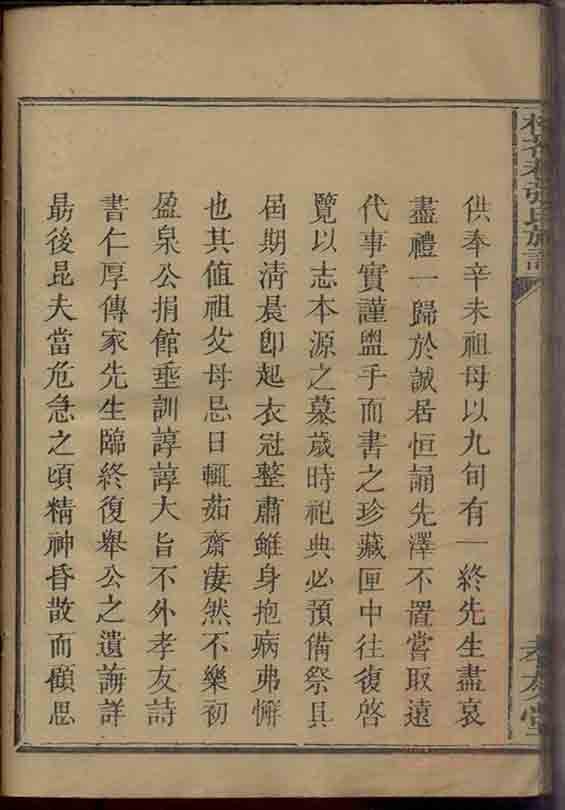 張氏族譜
孝友堂
供奉辛未祖母以九旬有一終先生盡哀
盡禮一歸於誠居恒誦先澤不置嘗取遠
代事實謹盥手而書之珍藏匣中往復啓
覽以志本源之慕歲時祀典必預備祭具
屆期淸晨卽起衣冠整肅雖身抱病弗懈
也其值祖父母忌日輒茹齋凄然不樂初
盈泉公捐館垂訓諄諄大旨不外孝友詩
書仁厚傳家先生臨終復舉公之遺誨詳
勗後昆夫當危急之頃精神昏散而顧思